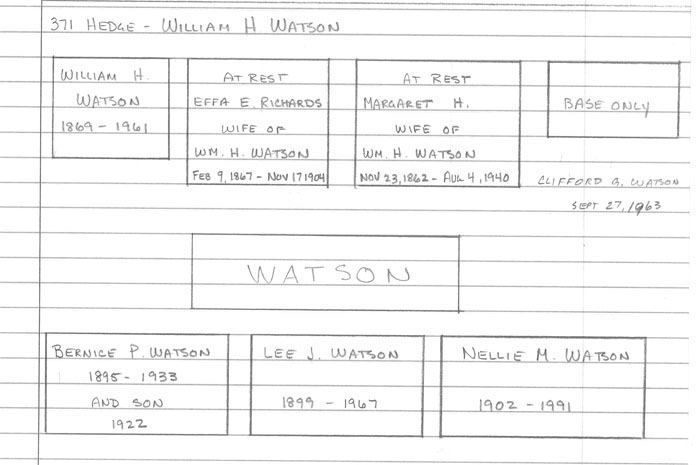 371 HEDGE - WILLIAM H WATSON
WILLIAM H.
WATSON
1869 - 1961
AT REST
EFFA E. RICHARDS
WIFE OF
WM. H. WATSON
FEB 9, 1867 - NOV 17 1904
AT REST
MARGARET H.
WIFE OF
WM. H. WATSON
NOV 23, 1862 - AUG 4, 1940
BASE ONLY
CLIFFORD G. WATSON
SEPT 27, 1963
WATSON
BERNICE P. WATSON
1895 - 1933
AND SON
1922
LEE J. WATSON
1899 - 1967
NELLIE M. WATSON
1902 - 1991